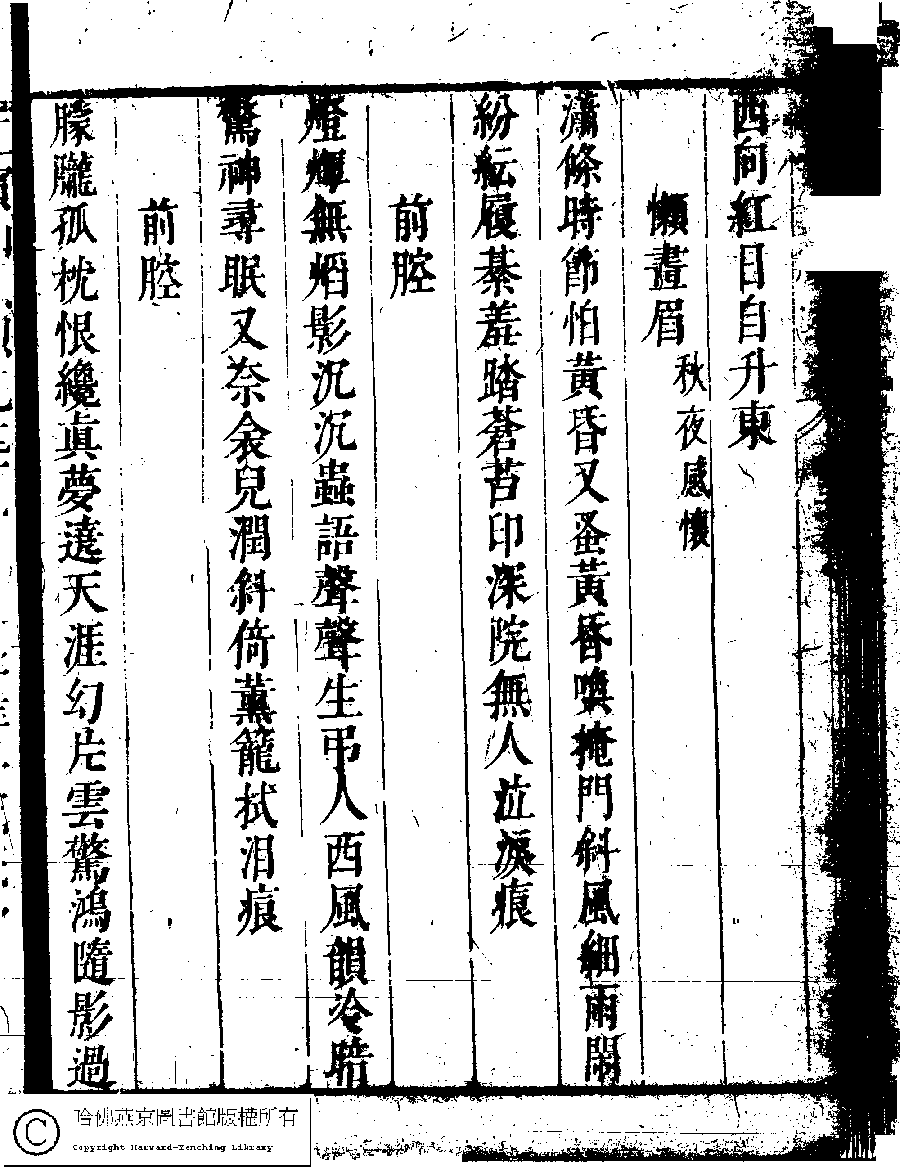 西向紅日自升東
懶畫眉 秋夜感懷
瀟條時節怕黃昏又蚤黃昏喚掩門斜風細雨閙
紛紜履綦羞踏蒼苔印深院無人泣淚痕
前腔
燈輝無熖影沉沉蟲語聲聲生弔人西風韻冷暗
驚神尋眠又奈衾兒潤斜倚薰籠拭泪痕
前腔
朦朧孤枕恨纔眞夢遶天涯幻片雲驚鴻隨影過
哈佛燕京圖書館版權所有
Copyright Harvard-Yenching Library